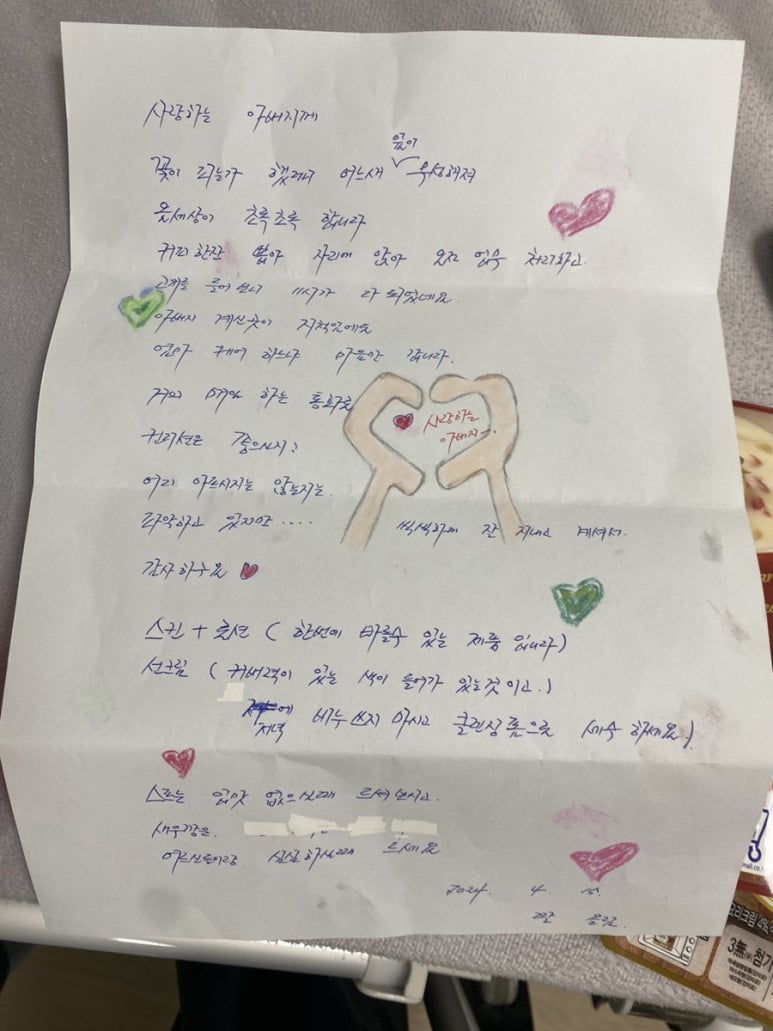 사랑하는 아버지께
꽃이 피는가 했더니 어느새 잎이 무성해져
온세상이 초록초록 합니다
커피한잔 뽑아 자리에 앉아 오전 업무 처리하고.
고개를 들어보니 11시가 다 되었네요.
아버지 계신곳이 지척인에도
엄마 케어 하느냐 마음만 갑니다.
거의 매일 하는 통화로
사랑하는
아버지~
컨디션은 좋으신지?
어디 아프시지는 않는지는.
파악하고 있지만 .... 씩씩하게 잘 지내고 계셔서.
감사하구요
스킨 + 로션 ( 한번에 바를수 있는 제품 입니다)
선크림 ( 커버력이 있는 색이 들어가 있는것 이고.)
저녁에 비누 쓰지 마시고 클렌징폼으로 세수 하세요.)
스프는 입맛 없으실때 드셔보시고.
새우깡은.
어르신들이랑 심심하실때 드세요
2024. 4. 15.
딸 올림.
요리크림
3無 첨가